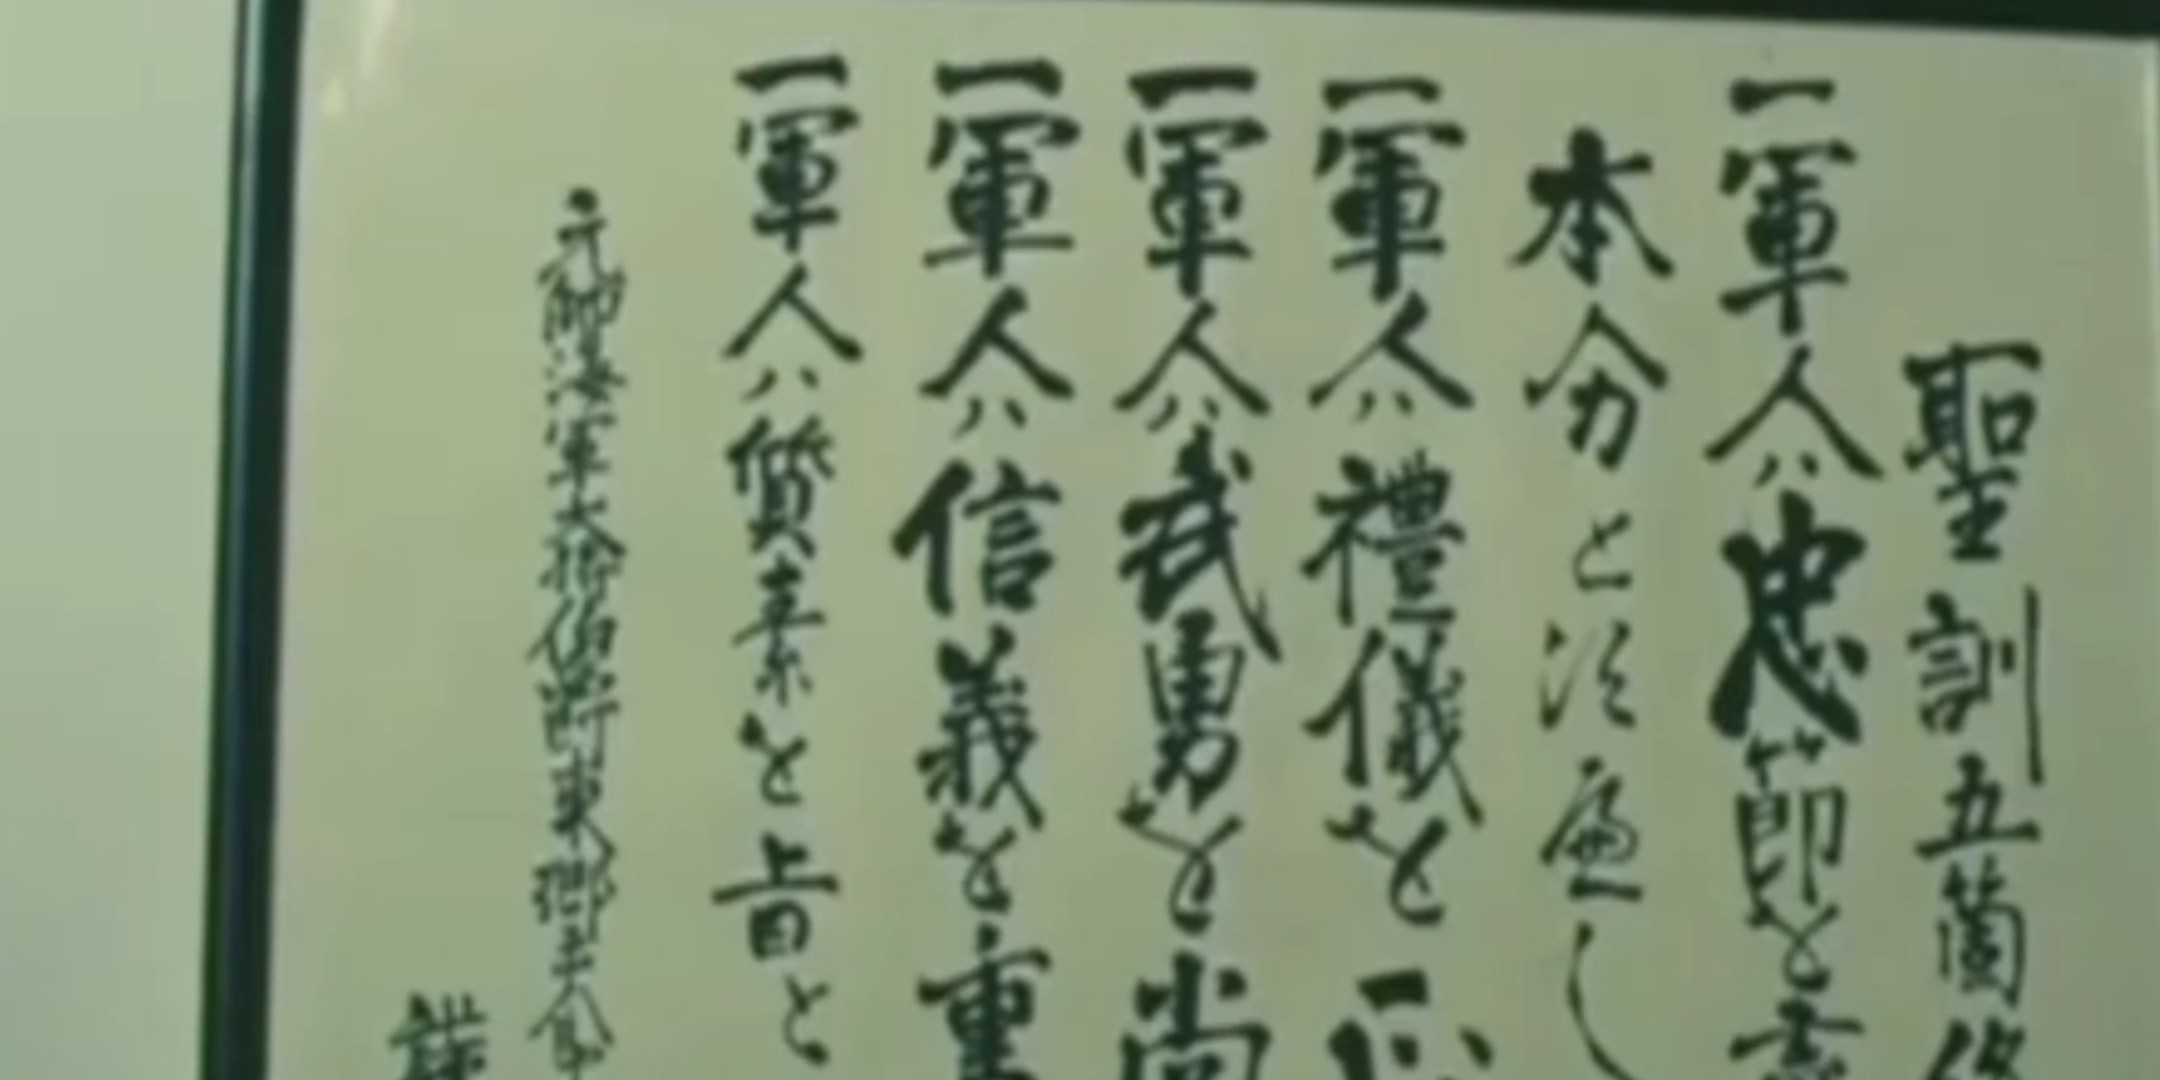 聖訓五箇條
一軍人ハ忠節を盡
本分と須へし
一軍人ハ禮儀を正
一軍人ハ武勇を尚
一軍人ハ信義を重
一軍人ハ質素を旨と
元帥海軍大将伯爵東郷平八郎
謹